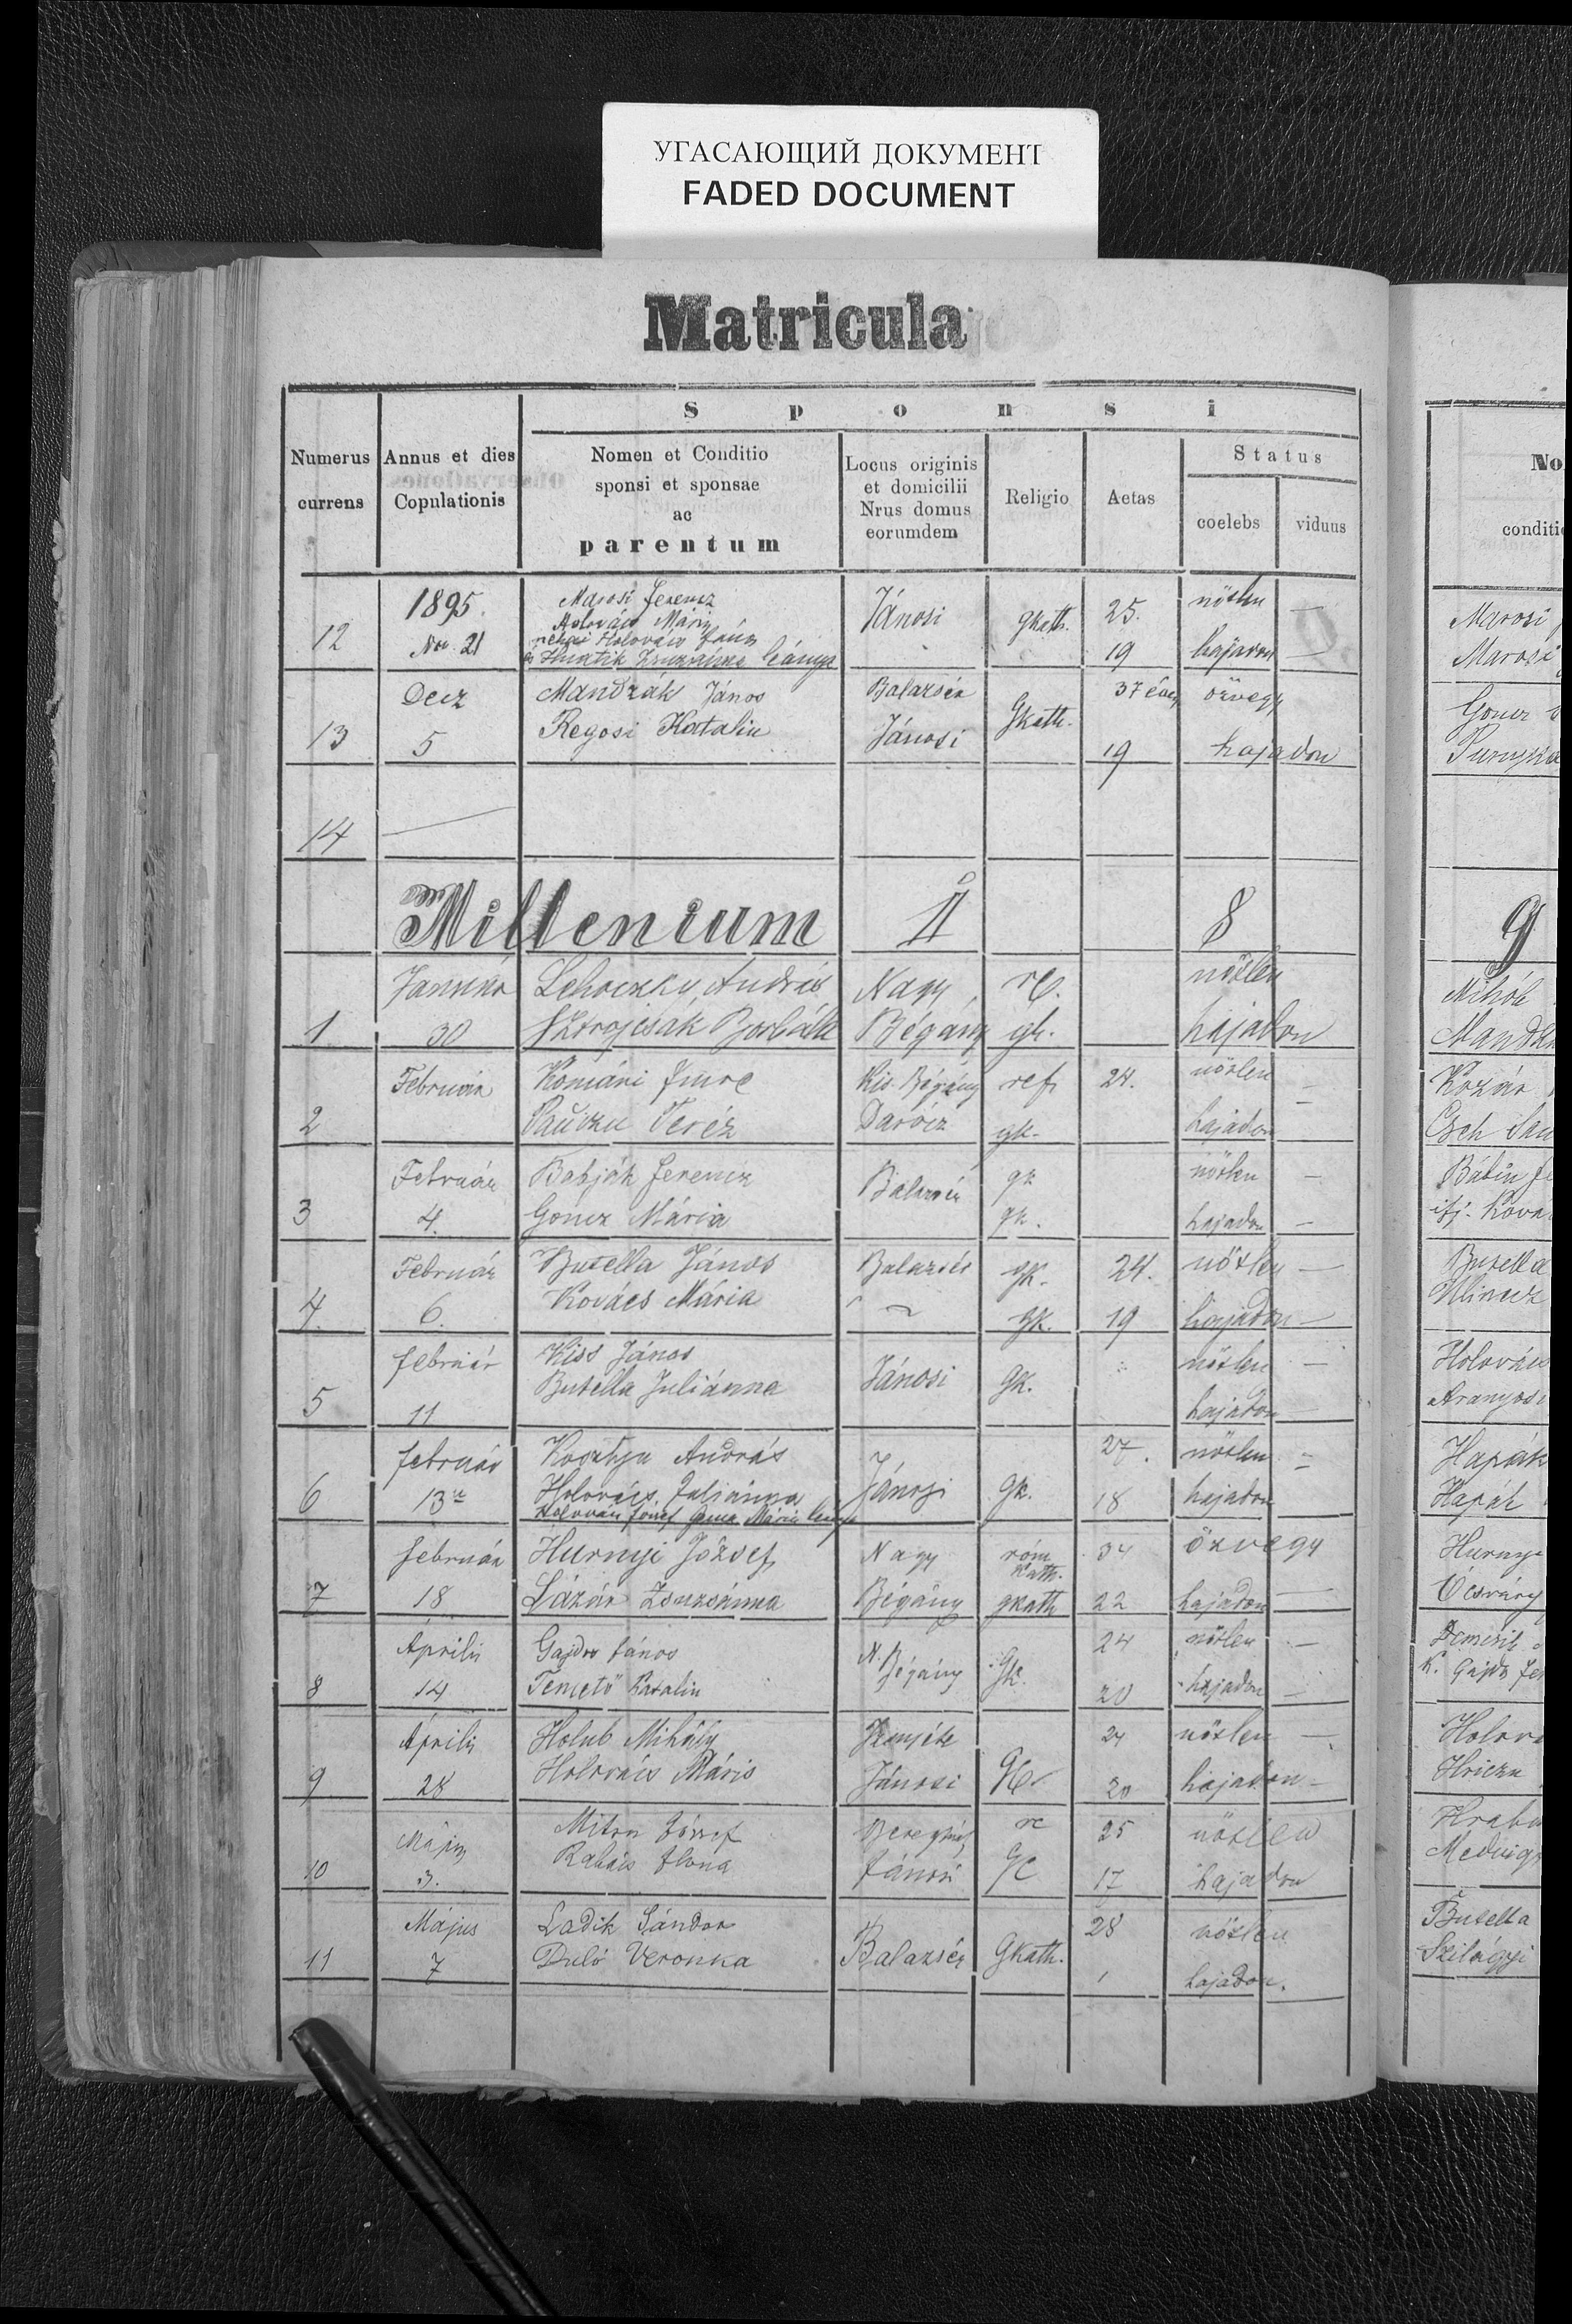 УГАСАЮЩИЙ ДОКУМЕНТ
FADED DOCUMENT
Matricula
S p o n s i
Numerus currens
Annus et dies Copulationis
Nomen et Conditio
sponsi et sponsae
ac
parentum
Locus originis
et domicilii
Nrus domus
eorumdem
Religio
Aetas
Status
coelebs
viduus
No
conditi
1895. Marosi Ferencz Jánosi gkath. 25. nőtlen — Marosi
12 Nov. 21 Holovács Mária 19 hajadon — Marosi
néhai Holovács János
Zsuzsánna leánya
Decz Mandzák János Balazsér Gkath. 37 éves özvegy Goncz
13 5 Regosi Katalin Jánosi 19 hajadon
14 —
Millenium 1 8 9
Januar Lehoczky András Nagy rc. nőtlen
1 30 Borbála Bégány gk. hajadon
Február Komári Imre Kis Bégány ref. 24. nőtlen — Kozár
2 Teréz Darócz gk. hajadon —
Február Babják Ferencz Balazsér gk nőtlen —
3 4. Göncz Mária gk. hajadon — ifj. Ková
Február Butella János Balazsér gk. 24. nőtlen — Butella
4. 6. Kovács Mária gk. 19 hajadon —
február Kiss János Jánosi Gk. nőtlen — Holovács
5 11 Butella Juliánna hajadon — Aranyosi
február András Jánosi Gk. 27. nőtlen Hapák
6 13 Holovács Juliánna 18 hajadon Hapák
február Hurnyi József Nagy róm kath. 34 özvegy Hurnyi
7 18 Lázár Zsuzsánna Bégány gkath 22 hajadon —
Aprilis Gajdos János N. Bégány Gk. 24 nőtlen —
8 14 Temető Katalin 20 hajadon — K. Gajdos
Április Holub Mihály 24 nőtlen — Holová
9 28 Holovács Máris Jánosi 20 hajadon —
Május József rc 25 nőtlen
10 3. Ilona Jánosi 17 hajadon
Május Ladik Sándor Balazsér Gkath. 28 nőtlen Butella
11 7 Duló Veronka hajadon. Szilágyi